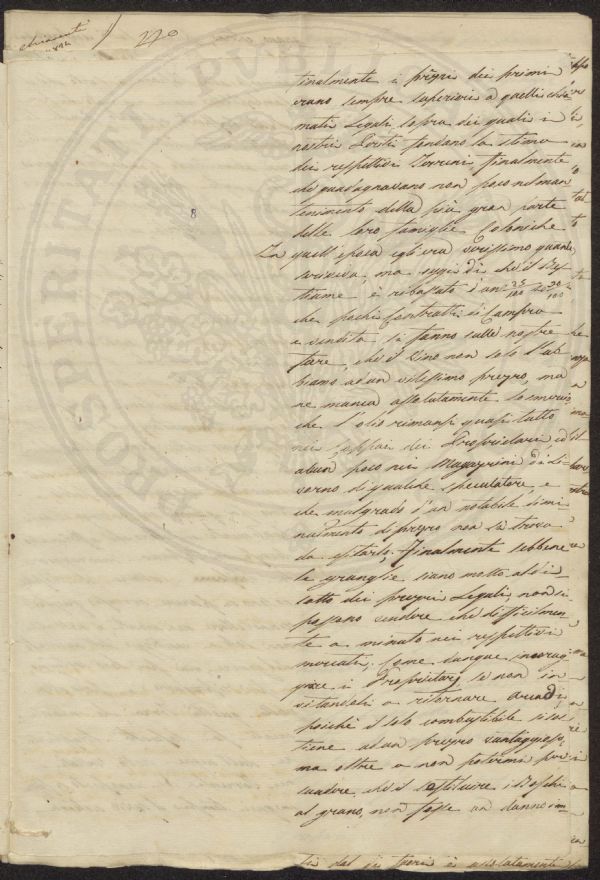 270
finalmente i prezzi dei primi
erano sempre superiori a quelli
mati Legali sopra dei quali i
nostri Periti fondano la stima
dei respettivi Terreni, finalmente
di guadagnavano non poco nel man
tenimento della più gran parte
delle loro famiglie Coloniche
In quell'epoca egli era verissimo quanto
scriveva, ma oggidì che il Bes
tiame è ribassato d'un 25/100 30/100
che pochi Contratti di Compra
e vendita si fanno sulle nostre
fiere, che il Vino non solo l'ab
biamo ad un vilissimo prezzo, ma
ne manca assolutamente lo smercio
che l'olio rimansi quasi tutto
nei coppai dei Proprietarj ed
alcun poco nei Magazzini di Li=
vorno di qualche speculatore, e
che malgrado d'un notabile dimi
nuimento di prezzo non si trova
da esitarlo, Finalmente sebbene
le granaglie siano molto al di
sotto dei prezzi Legali, non si
possano vendere che difficilmen
te a minuto nei respettivi
mercati; Come dunque incorag
gire i Proprietarj se non in
vitandoli a ritornare
poichè il solo combustibile si sos
tiene ad un prezzo vantaggioso,
ma oltre a non potermi per
suadere che il sostituire i Boschi
al grano, non fosse un danno im
PROSPERITATI PVBLICAE